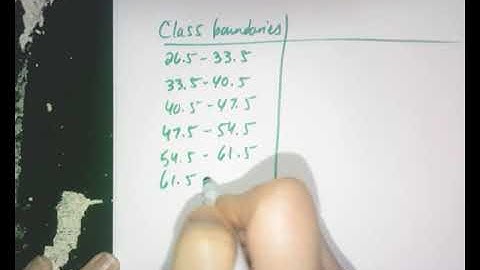 Class boundaries
26.5 - 33.5
33.5 - 40.5
40.5 - 47.5
47.5 - 54.5
54.5 - 61.5
61.5